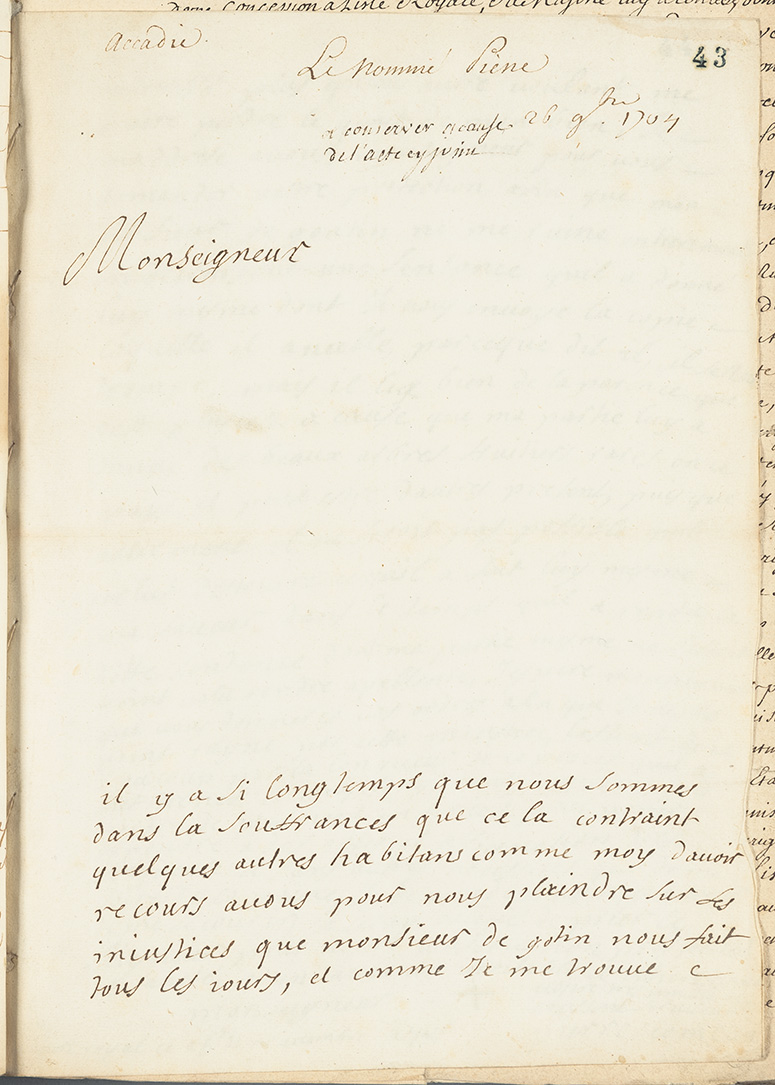 Accadie.
43
Le nommé Piene
a conserver a cause
26 9bre 1704
de l'acte cy joint
Monseigneur
il y a si longtemps que nous sommes
dans la souffrances que ce la contraint
quelques autres habitans comme moy davoir
recours avous pour nous plaindre sur les
iniustices que monsieur de gotin nous fait
tous les iours, et comme Je me trouve